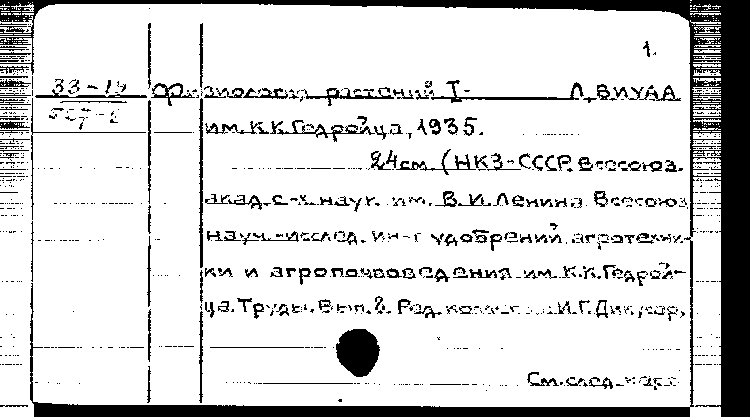 1.
33-15 Физиология растений I- Л, ВИУАА
им. К.К.Гедройца, 1935.
24см. (НКЗ-СССР. Всесоюз.
акад. с-х. наук. им. В. И. Ленина. Всесоюз
науч.-исслед. ин-т удобрений, агротехни-
ки и агропочвоведения им. К.К.Гедрой-
ца. Труды. Вып. 8. Ред. И.Г. Дикусар,
См. след. карт